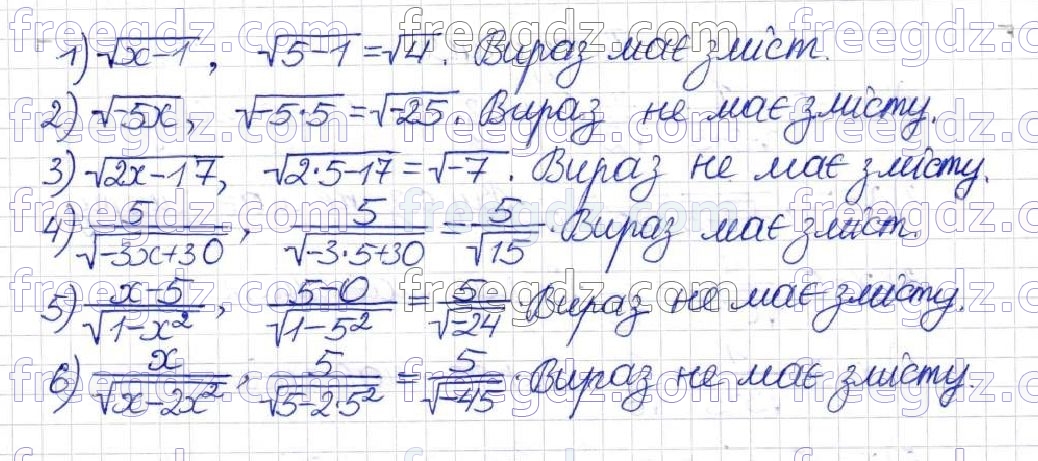 1) √(x-1), √(5-1) = √4. Вираз має зміст.
2) √(-5x), √(-5·5) = √(-25). Вираз не має змісту.
3) √(2x-17), √(2·5-17) = √(-7). Вираз не має змісту.
4) 5/√(-3x+30), 5/√(-3·5+30) = 5/√15. Вираз має зміст.
5) x-5/√(1-x²), 5-0/√(1-5²) = 5/√(-24) Вираз не має змісту.
6) x/√(x-2x²), 5/√(5-2·5²) = 5/√(-45). Вираз не має змісту.